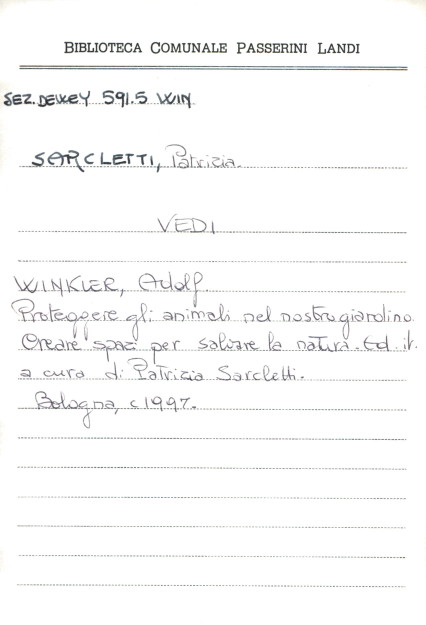 BIBLIOTECA COMUNALE PASSERINI LANDI
SEZ. DEWEY 591.5 WIN
SARCLETTI, Patrizia.
VEDI
WINKLER, Adolf.
Proteggere gli animali nel nostro giardino.
Creare spazi per salvare la natura. Ed. it.
a cura di Patrizia Sarcletti.
Bologna, c1997.